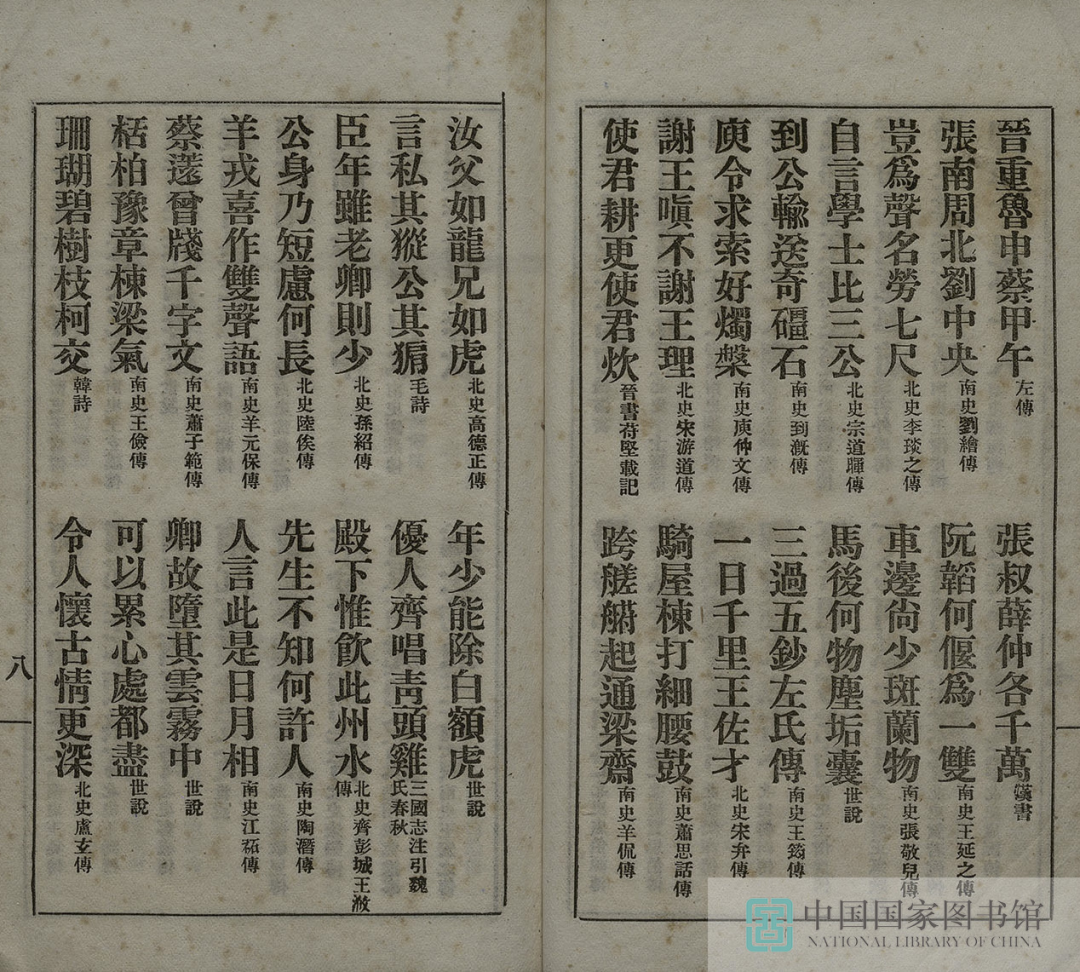 晉重魯申蔡甲午左傳　張叔薛仲各千萬漢書
張南周北劉中央南史劉繪傳　阮韜何偃爲一雙南史王延之傳
豈爲聲名勞七尺北史李琰之傳　車邊尙少斑蘭物南史張敬兒傳
自言學士比三公北史宗道暉傳　馬後何物塵垢囊世說
到公輸送奇礓石南史到溉傳　三過五鈔左氏傳南史王筠傳
庾令求索好燭槃南史庾仲文傳　一日千里王佐才北史宋弁傳
謝王嗔不謝王理北史宋游道傳　騎屋棟打細腰鼓南史蕭思話傳
使君耕更使君炊晉書苻堅載記　跨艖艑起通梁齋南史羊侃傳
汝父如龍兄如虎北史高德正傳　年少能除白額虎世說
言私其豵公其豣毛詩　優人齊唱靑頭雞三國志注引魏氏春秋
臣年雖老卿則少北史孫紹傳　殿下惟飮此州水北史齊彭城王浟傳
公身乃短慮何長北史陸俟傳　先生不知何許人南史陶潛傳
羊戎喜作雙聲語南史羊元保傳　人言此是日月相南史江祏傳
蔡薳曾牋千字文南史蕭子範傳　卿故墮其雲霧中世說
栝柏豫章棟梁氣南史王儉傳　可以累心處都盡世說
珊瑚碧樹枝柯交韓詩　令人懷古情更深北史盧玄傳
八
中国国家图书馆
NATIONAL LIBRARY OF CHINA